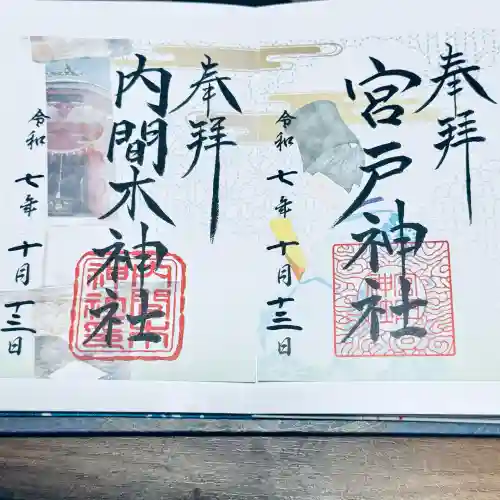 奉拝
宮戸神社
令和七年十月十三日
奉拝
内間木神社
令和七年十月十三日